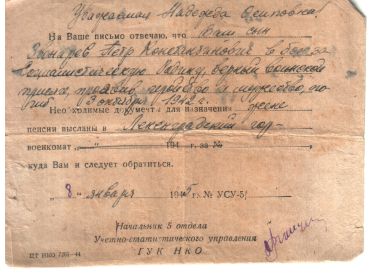 Уважаемая Надежда Осиповна!
На Ваше письмо отвечаю, что Ваш сын
Петр Константинович в бою за
Социалистическую Родину, верный воинской
присяге, проявив геройство и мужество, по-
гиб 3 октября 1942 г.
Необходимые документы для назначения
пенсии высланы в гор-
военкомат „ " 194 г. за №
куда Вам и следует обратиться.
„8" января 1945 г. № УСУ-5
Начальник 5 отдела
Учетно-статистического управления
ГУК НКО